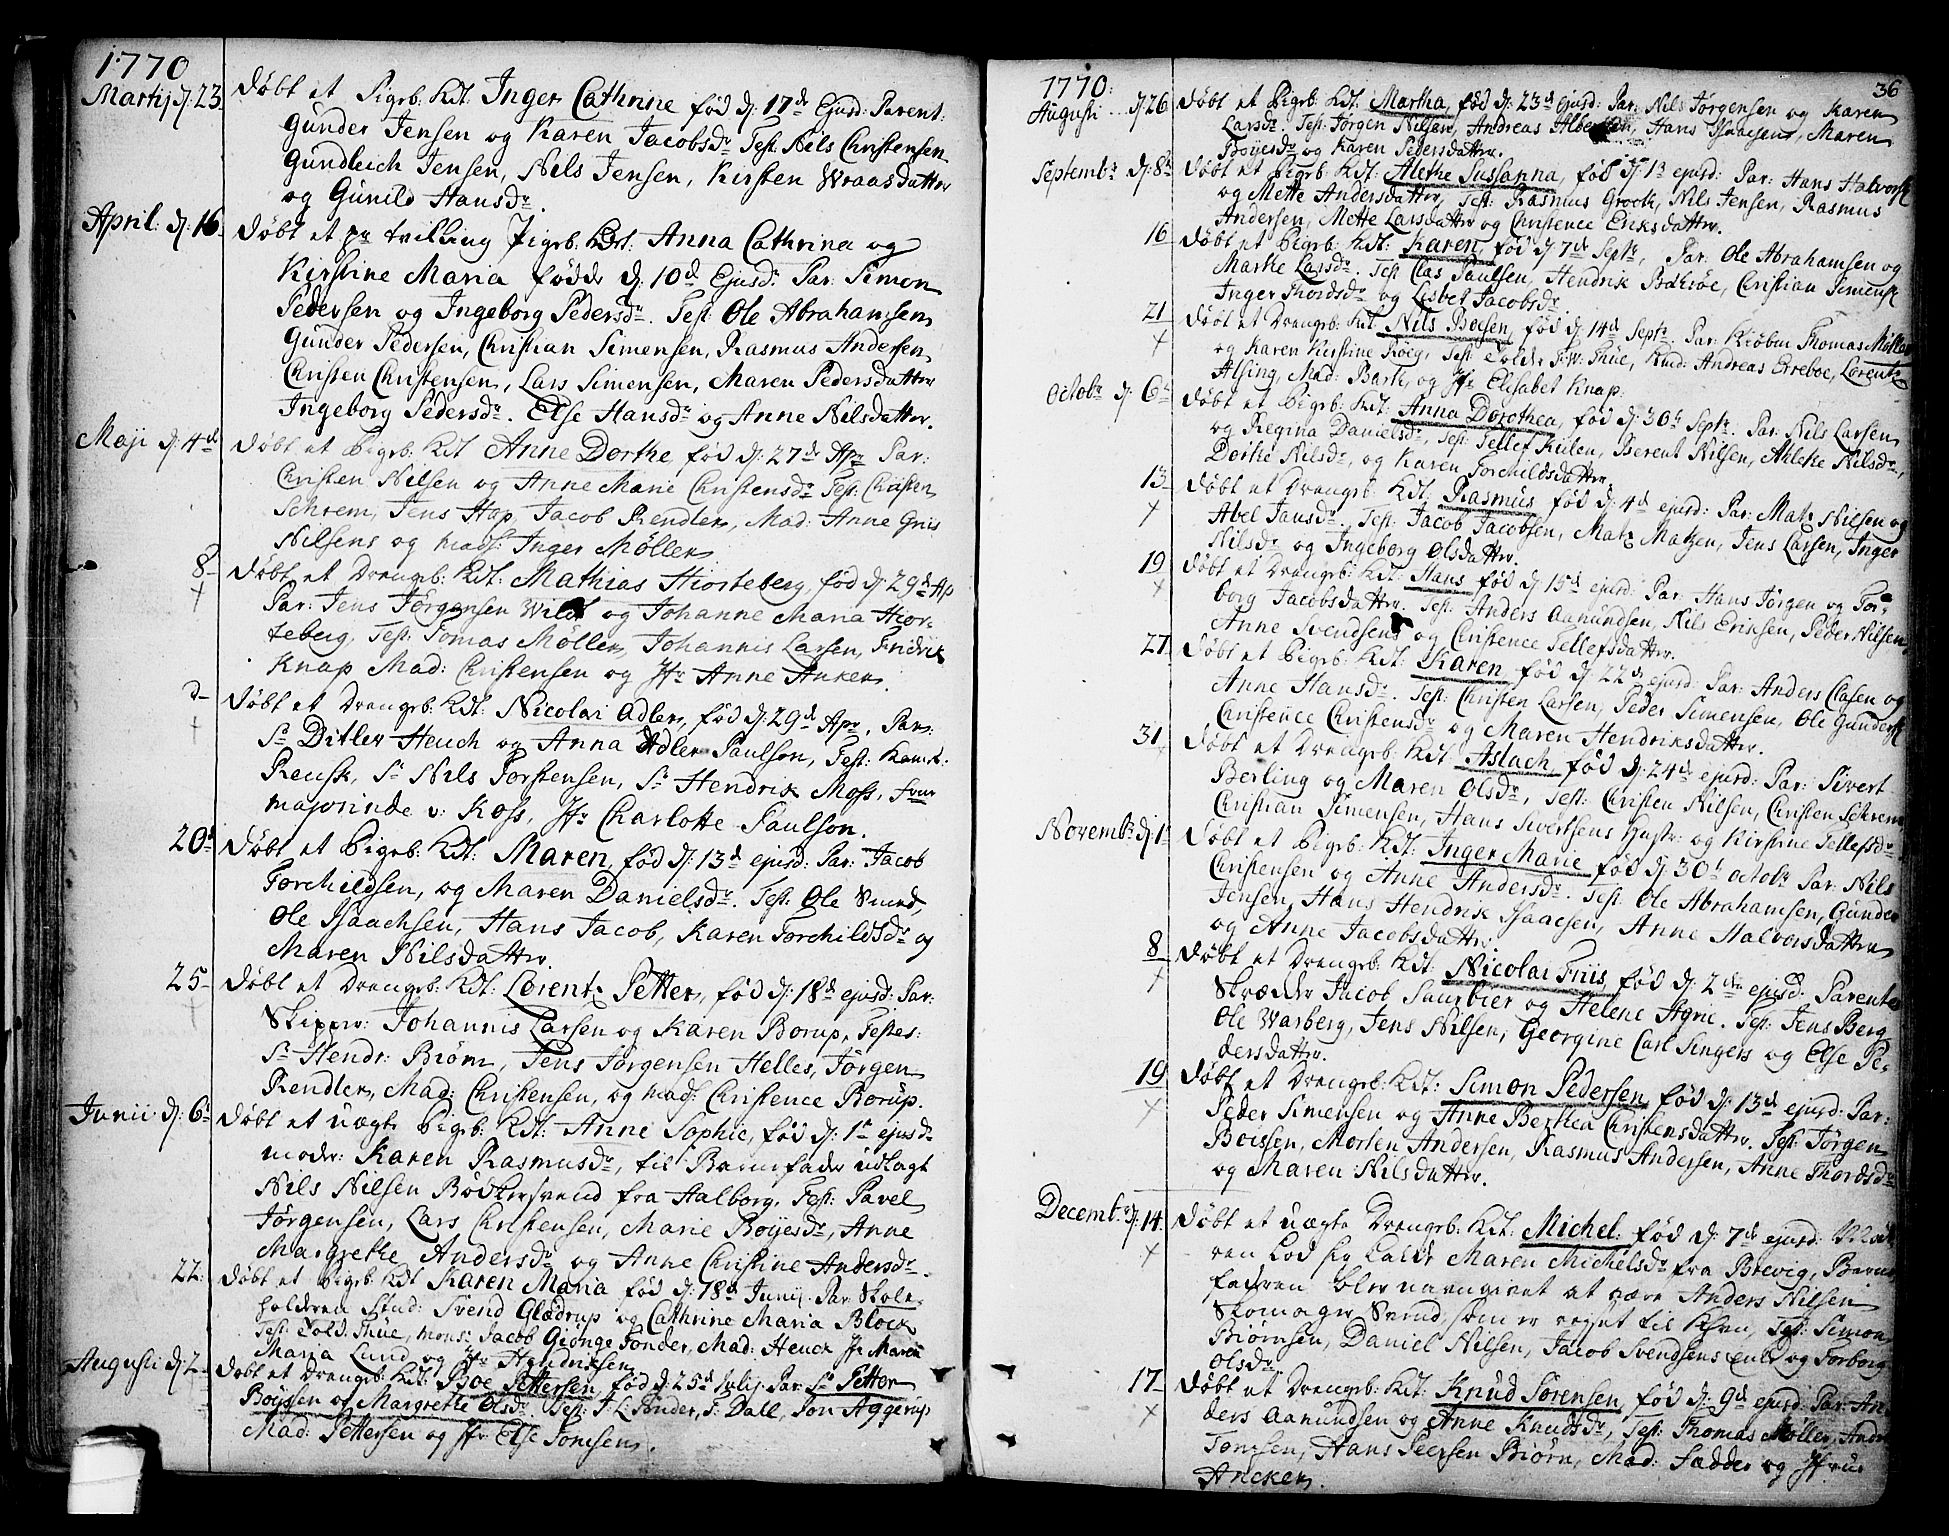 1770
Martij d: 23. døbt et Pigeb: Kdt: Inger Cathrine fød d: 17de Ejusd: Parent:
Gunder Jensen og Karen Jacobsdr Test: Nils Christensen
Gundleich Jensen, Nils Jensen, Kirsten Wraasdatter
og Gunild Hansdr.
April: d: 16. døbt et pr tvilling Pigeb: Kdt: Anna Cathrina og
Kirstine Maria fødde d: 10d Ejusd: Par: Simon
Pedersen og Ingeborg Pedersdr. Test: Ole Abrahamsen
Gunder Pedersen, Christian Simensen, Rasmus Andersen
Christen Christensen, Lars Simensen, Maren Pedersdatter
Ingeborg Pedersdr. Else Hansdr og Anne Nilsdatter.
Maji d: 4d døbt et Pigeb: Kdt Anne Dorthe, fød d: 27de Apr Par:
Christen Nilsen og Anne Marie Christensdr Test: Christen
Schrem, Jens Hap, Jacob Rendler, Mad: Anne Gris
Nilsens og mads: Inger Møller
8 døbt et Drengeb: Kdt: Mathias Hiorteberg, fød d: 29d Ap
Par: Jens Jørgensen Wildt og Johanne Maria Hior-
teberg, Test: Tomas Møller, Johannis Larsen, Fridrik
Knap Mad: Christensen og Jfr Anne Anker.
d– døbt et Drengeb: Kdt: Nicolai Adler, fød d: 29d Apr, Par:
Sr Ditler Heuch og Anna Adler Paulson, Test: Kamr:
Reusk, Sr Nils Torstensen, Sr Hendrik Moss, frue
majorinde v: Koss, Jfr Charlotte Paulson.
20 døbt et Pigeb: Kdt: Maren, fød d: 13d ejusd: Par: Jacob
Torchildsen, og Maren Danielsdr. Test: Ole Smed,
Ole Isaachsen, Hans Jacob, Karen Torchildsdr og
Maren Nilsdatter.
25 døbt et Drengeb: Kdt: Lorentz Petter, fød d: 18d ejusd: Par:
Skipper: Johannis Larsen og Karen Borup, Testes:
Sr Hendr: Biørn, Jens Jørgensen Helles, Jørgen
Rendler, Mad: Christensen, og mads: Christence Borup.
Junii d: 6 døbt et uægte Pigeb: Kdt: Anne Sophie, fød d: 1 ejusd
moder: Karen Rasmusdr, til Barnefader udlagt
Nils Nilsen Bødkersvend fra Aalborg, Test: Pavel
Jørgensen, Lars Christensen, Marie Boyesdr, Anne
Margrethe Andersdr og Anne Christine Andersdr.
22 døbt et Pigeb: Kdt Karen Maria fød d: 18d Junij. Par: Skole-
holderen Stud: Svend Glødrup og Cathrine Maria Block
Test: Told: Thue, mons: Jacob Gionge Tonder, Mad: Heuch Jfr Maria
Maria Lund og Jfr Hendriksen
Augusti d: 2 døbt et Drengeb: Kdt: Boe Pettersen, fød d: 25d Julij. Par: Sr Petter
Boyssen og Margrethe Olsdr. Test: J: L: Tonder, S: Dall, Jon Aggerup
Mad: Pettersen og Jfr Else Tomsen.
36
1770
Augusti d: 26 døbt et Pigeb: Kdt: Martha, fød d: 23d ejusd: Par: Nils Jørgensen og Karen
Larsdr. Test: Jørgen Nilsen, Andreas Albertsen, Hans Isaacsen, Maren
Boyesdr og Karen Pedersdatter.
Septembr d: 8 døbt et Pigeb: Kdt: Alethe Sussanna, fød d: 1 ejusd: Par: Hans Halvorsen
og Mette Andersdatter, Test: Rasmus Grook, Nils Jensen, Rasmus
Andersen, Mette Larsdatter og Christence Eriksdatter.
16 døbt et Pigeb: Kdt: Karen, fød d: 7d Septr, Par: Ole Abrahamsen og
Marthe Larsdr. Test: Clas Paulsen, Hendrik Bakrøe, Christian Simensen
Inger Thordsdr og Lisbet Jacobsdr.
21 døbt et Drengeb: Kdt: Nils Boesen, fød d: 14d Septr. Par: Kiøbm Thomas Møller
og Karen Kirstine Roeg, Test: Tolder F: W: Thue, Knud: Andreas Erreboe, Lorentz
Alsing, Mad: Barth, og Jfr Elisabet Knap.
Octobr d: 6 døbt et Pigeb: Kdt: Anna Dorothea, fød d: 30 Septr. Par: Nils Larsen
og Regina Danielsdr, Test: Tellef Kiilen, Berent Nilsen, Ahlethe Nilsdr,
Dorthe Nilsdr, og Karen Torchildsdatter.
13 døbt et Drengeb: Kdt: Rasmus fød d: 4d ejusd: Par: Matz Nilsen og
Abel Jansdr. Test: Jacob Jacobsen, Matz Matzen, Jens Larsen, Inger
Nilsdr og Ingeborg Olsdatter.
19 døbt et Drengeb: Kdt: Hans fød d: 15d ejusd: Par: Hans Jørgen og Tor-
borg Jacobsdatter. Test: Anders Aanundsen, Nils Eriksen, Peder Nilsen
Anne Svendsens og Christence Tellefsdatter.
27 døbt et Pigeb: Kdt: Karen fød d: 22d ejusd: Par: Anders Clasen og
Anne Hansdr. Test: Christen Larsen, Peder Simensen, Ole Gundersen
Christence Christensdr og Maren Hendriksdatter.
31 døbt et Drengeb: Kdt: Aslach, fød d: 24de ejusd: Par: Sivert
Berling og Maren Olsdr, Test: Christen Nilsen, Christen Schrem
Christian Simensen, Hans Sivertsens Hustr: og Kirstine Tellefsdr
Novembr d: 1 døbt et Pigeb: Kdt: Inger Marie fød d: 30 octobr Par: Nils
Christensen og Anne Andersdr. Test: Ole Abrahamsen, Gunder
Jensen, Hans Hendrik Isaacsen, Anne Halvorsdatter
og Anne Jacobsdatter.
8 døbt et Drengeb: Kdt: Nicolai Friis, fød d: 2den ejusd: Parentes
Skræder Jacob Saurbier og Helene Agrie. Test: Jens Berg
Ole Warberg, Jens Nilsen, Georgine Carl Singers og Else Pe-
dersdatter.
19 døbt et Drengeb: Kdt: Simon Pedersen fød d: 13d ejusd: Par:
Peder Simensen og Anne Berthea Christensdatter. Test: Jørgen
Boissen, Morten Andersen, Rasmus Andersen, Anne Thordsdr
og Maren Nilsdatter.
Decembr d: 14 døbt et uægte Drengeb: Kdt: Michel: fød d: 7de ejusd:
ren lod sig kalde Maren Michelsdr fra Brevig, Barne-
faderen blev navngivet at være Anders Nilsen
Skomager Svend, som er reyst til Khvn, Test: Simon
Biørnsen, Daniel Nilsen, Jacob Svendsens Enke og Torborg
Olsdr
17 døbt et Drengeb: Kdt: Knud Sørensen fød d: 9d ejusd: Par: An-
ders Aanundsen og Anne Knudsdr, Test: Thomas Møller, Andr
Tomsen, Hans Peersen Biørn, Mad: Fadder og Jfrue
Ancker.